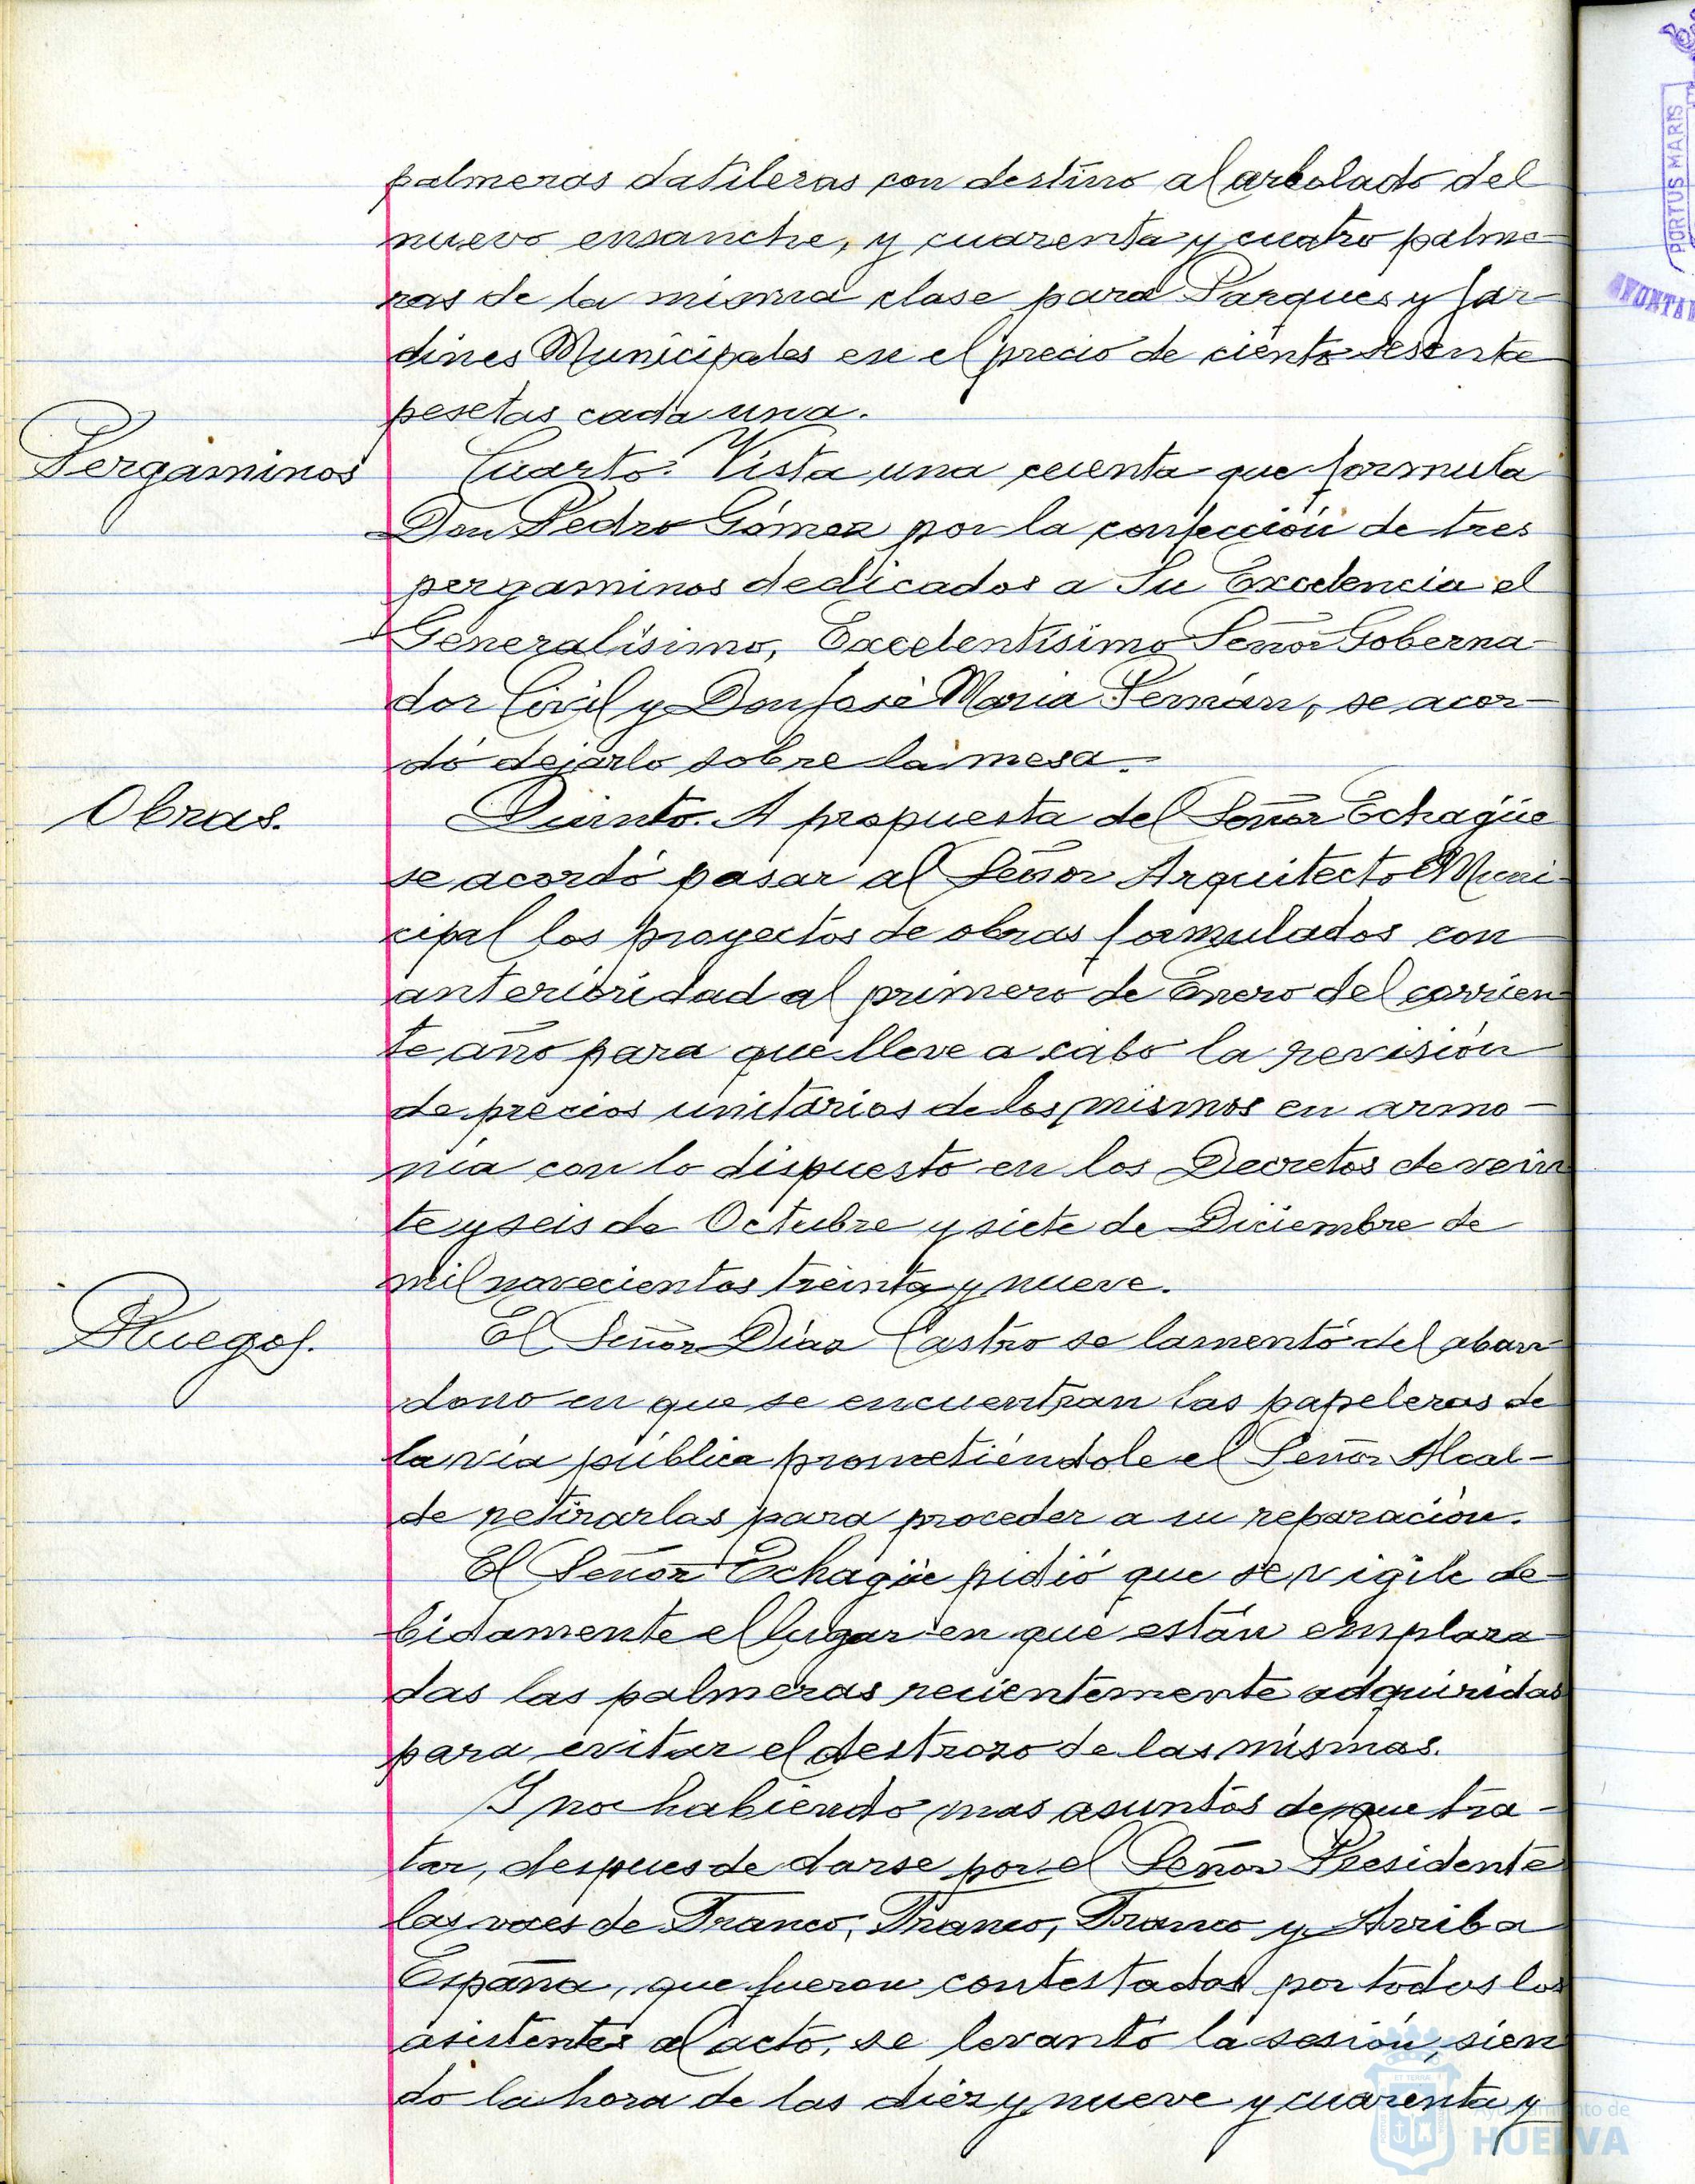 palmeras datileras con destino al arbolado del
nuevo ensanche, y cuarenta y cuatro palme-
ras de la misma clase para Parques y Jar-
dines Municipales en el precio de ciento sesenta
pesetas cada una.
Pergaminos
Cuarto. Vista una cuenta que formula
Don Pedro Gómez por la confección de tres
pergaminos dedicados a Su Excelencia el
Generalísimo, Excelentísimo Señor Goberna-
dor Civil y Don José María Pemán, se acor-
dó dejarlo sobre la mesa.
Obras.
Quinto. A propuesta del Señor Echagüe
se acordó pasar al Señor Arquitecto Muni-
cipal los proyectos de obras formulados con
anterioridad al primero de Enero del corrien-
te año para que lleve a cabo la revisión
de precios unitarios de los mismos en armo-
nía con lo dispuesto en los Decretos de vein
te y seis de Octubre y siete de Diciembre de
mil novecientos treinta y nueve.
Ruegos.
El Señor Díaz Castro se lamentó del aban-
dono en que se encuentran las papeleras de
la vía pública prometiéndole el Señor Alcal-
de retirarlas para proceder a su reparación.
El Señor Echagüe pidió que se vigile de-
bidamente el lugar en que están emplaza-
das las palmeras recientemente adquiridas
para evitar el destrozo de las mismas.
Y no habiendo mas asuntos de que tra-
tar, despues de darse por el Señor Presidente
las voces de Franco, Franco, Franco y Arriba
España, que fueron contestados por todos los
asistentes al acto, se levantó la sesión, sien
do la hora de las diez y nueve y cuarenta y
PORTUS MARIS
Ayuntamiento de
HUELVA